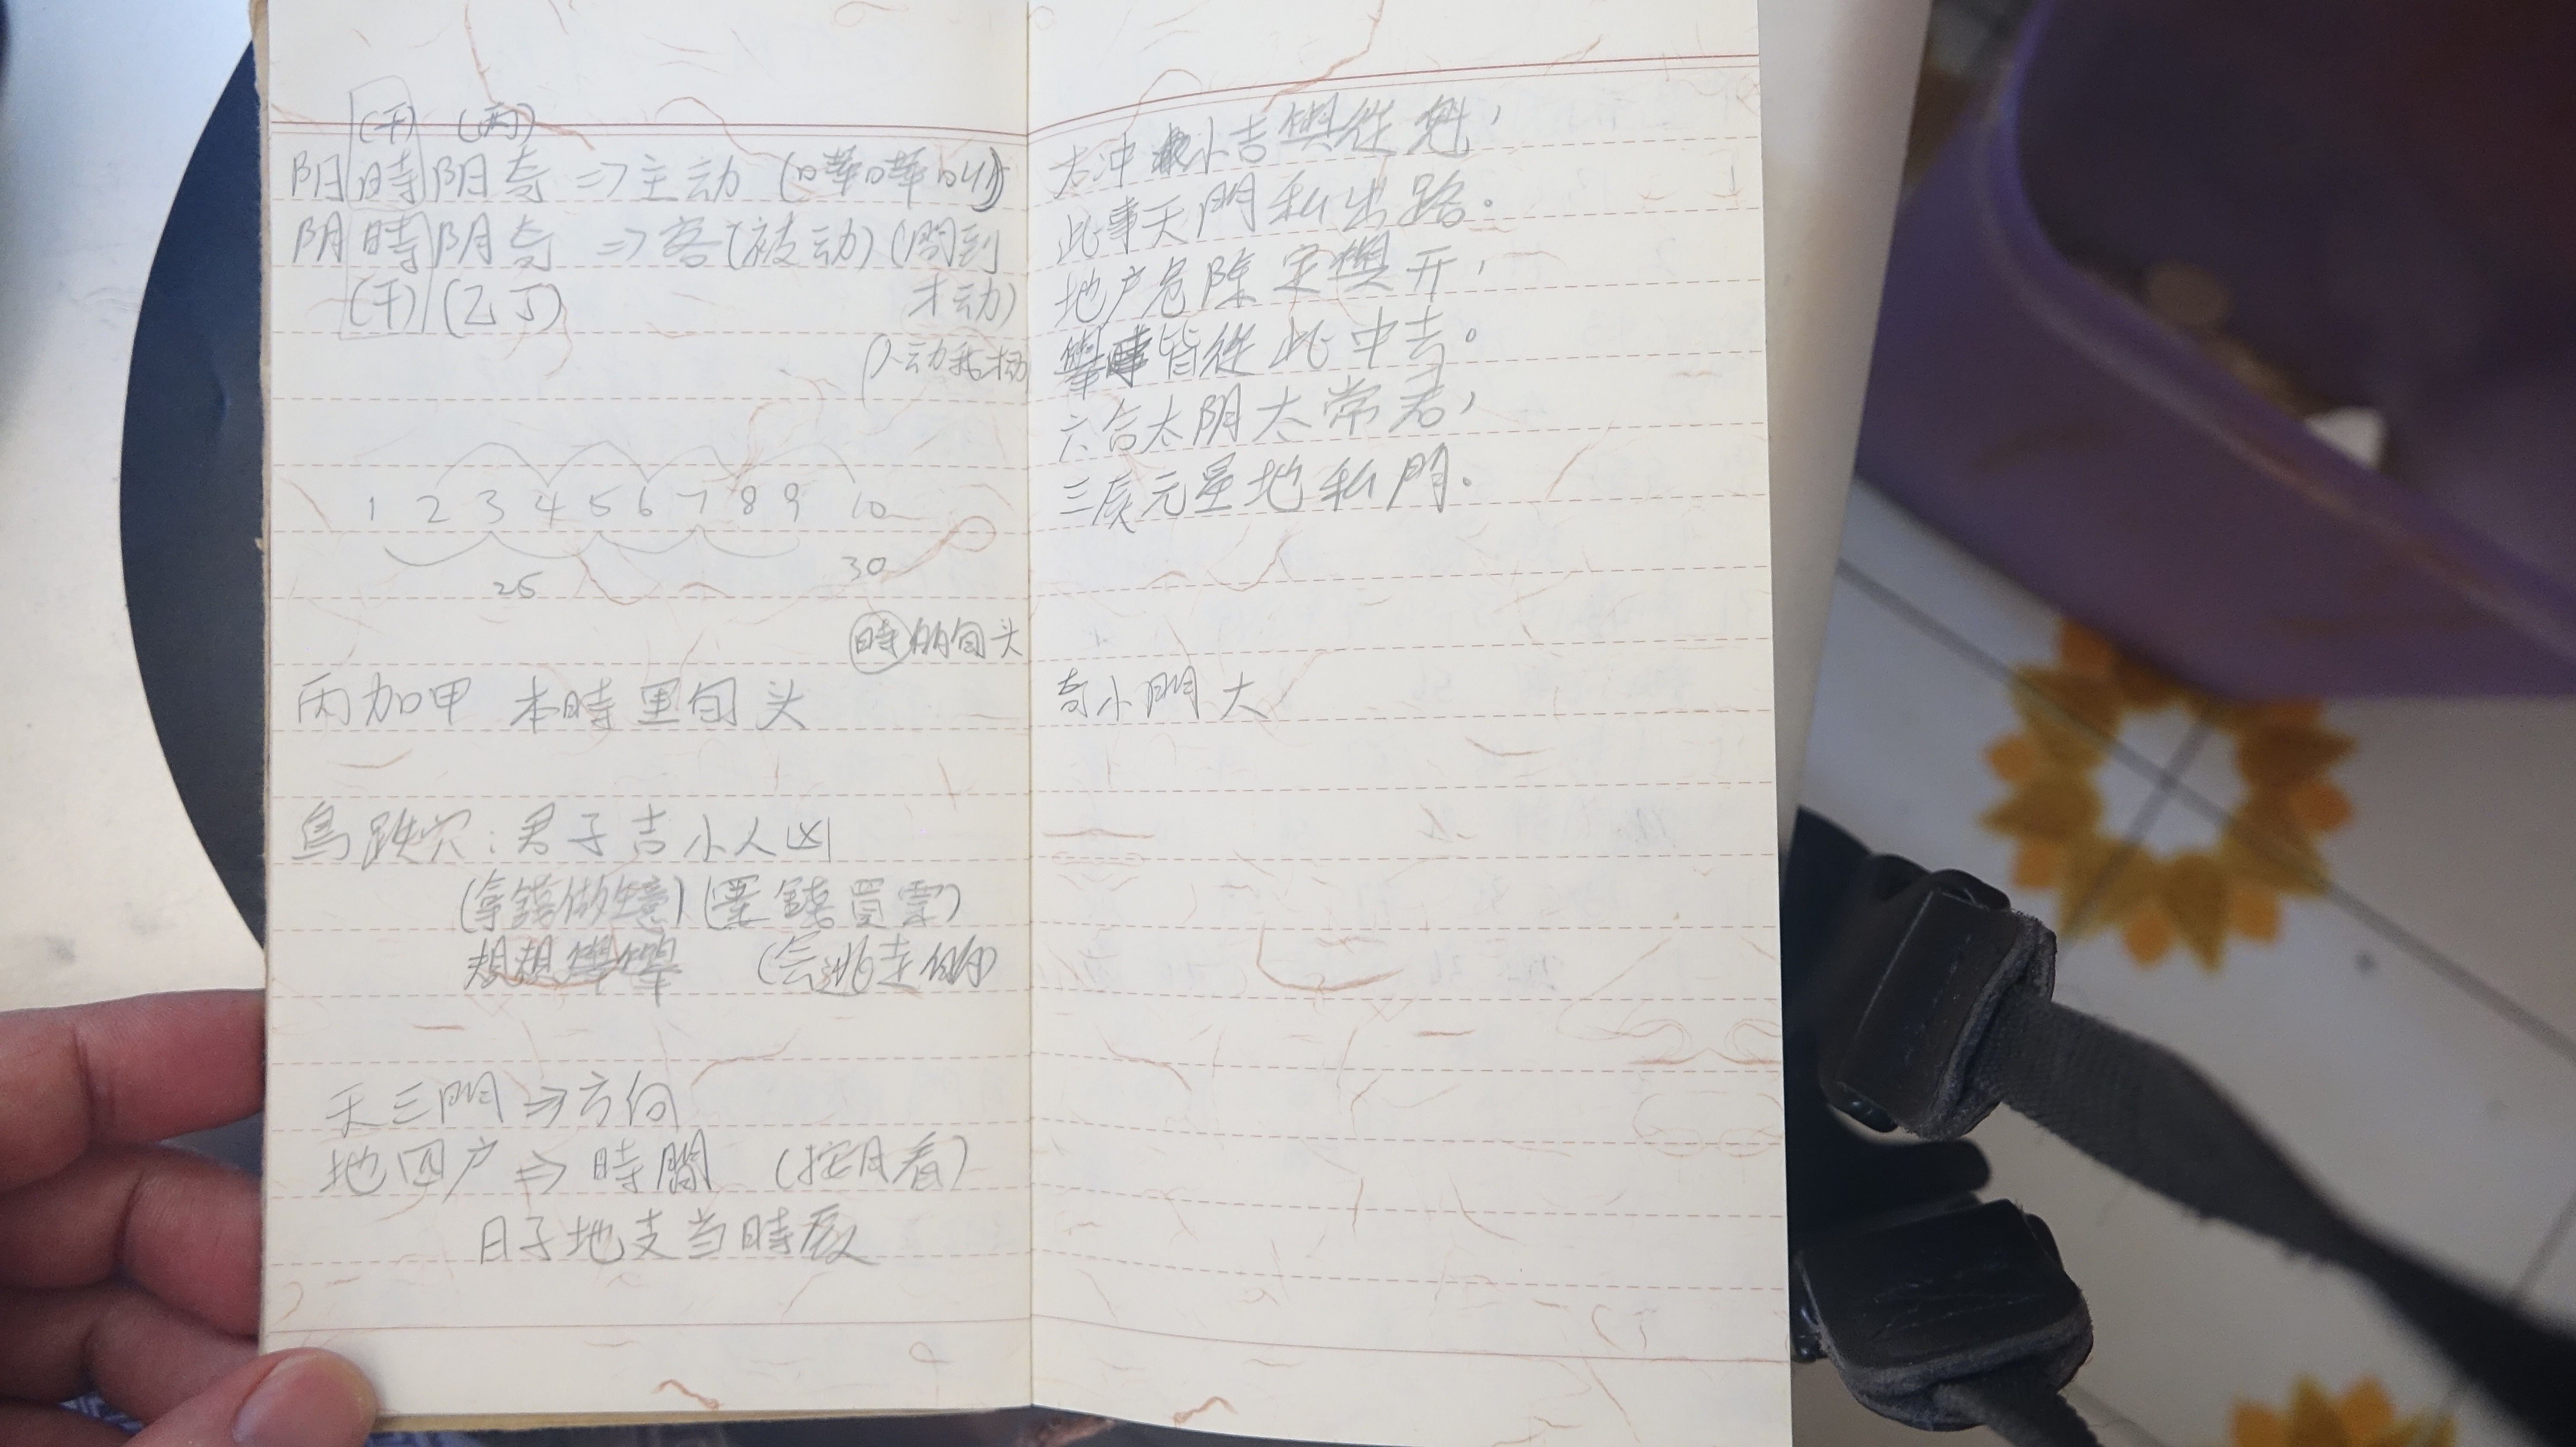 (干) (丙)
阳時阳奇 => 主动 (哗哗叫)
阴時阴奇 => 客(被动) (問到
(干) (乙丁) 才动)
人动我才动
1 2 3 4 5 6 7 8 9 10
25 30
時的旬头
丙加甲 本時里旬头
鳥跌穴:君子吉小人凶
(拿錢做生意) (錢買票)
規規 (会逃走的)
天三門 => 方向
地四户 => 時間 (按月看)
日子地支当時辰
太冲小吉與從魁,
此事天門私出路.
地户危除定與开,
舉事皆從此中去。
六合太阴太常君,
三辰元星地私門.
奇小門大